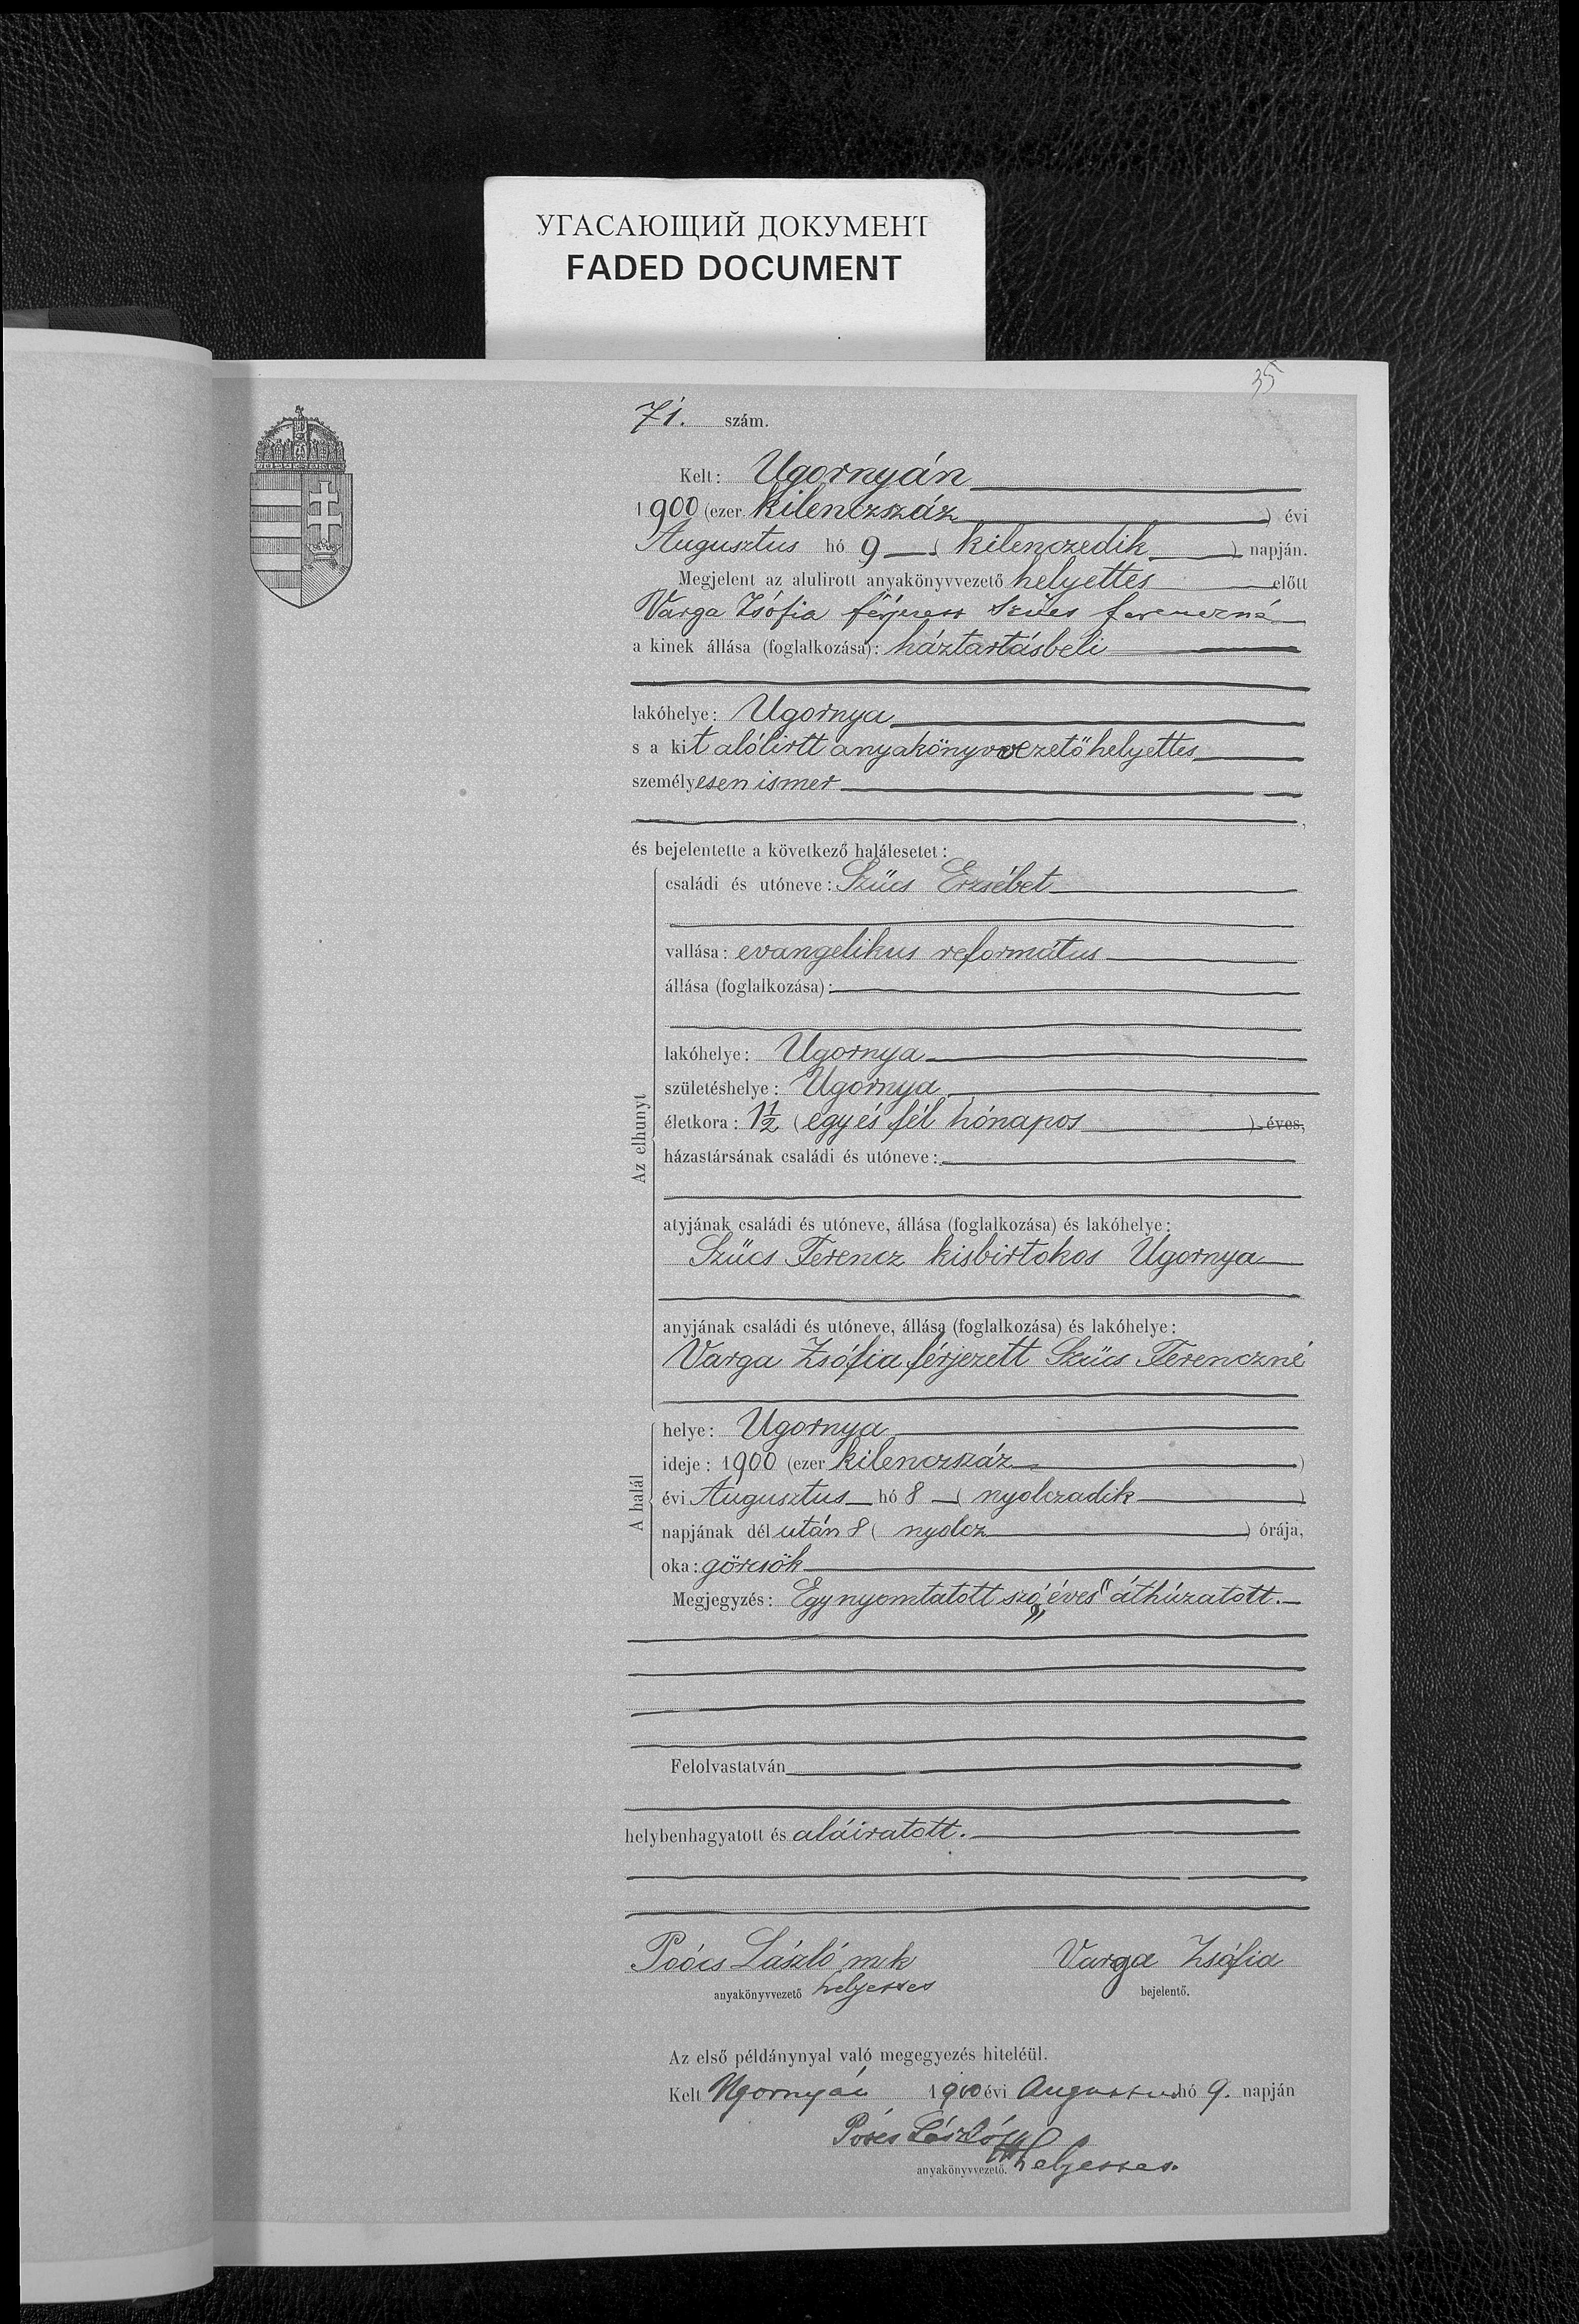 УГАСАЮЩИЙ ДОКУМЕНТ
FADED DOCUMENT
35
71. szám.
Kelt: Ugornyán
1900 (ezer kilenczszáz) évi
Augusztus hó 9 (kilenczedik) napján.
Megjelent az alulirott anyakönyvvezető helyettes előtt
Varga Zsófia férjezett Szűcs Ferenczné
a kinek állása (foglalkozása): háztartásbeli
lakóhelye: Ugornya
s a kit alólirtt anyakönyvvezető helyettes
személyesen ismer,
és bejelentette a következő halálesetet:
Az elhunyt
családi és utóneve: Szűcs Erzsébet
vallása: evangelikus református
állása (foglalkozása):
lakóhelye: Ugornya
születéshelye: Ugornya
életkora: 1 1/2 (egy és fél hónapos) éves,
házastársának családi és utóneve:
atyjának családi és utóneve, állása (foglalkozása) és lakóhelye:
Szűcs Ferencz kisbirtokos Ugornya
anyjának családi és utóneve, állása (foglalkozása) és lakóhelye:
Varga Zsófia férjezett Szűcs Ferenczné
A halál
helye: Ugornya
ideje: 1900 (ezer kilenczszáz)
évi Augusztus hó 8 (nyolczadik)
napjának dél után 8 (nyolcz) órája,
oka: görcsök
Megjegyzés: Egy nyomtatott szó „éves" áthúzatott.
Felolvastatván
helybenhagyatott és aláiratott.
Poócs László mk Varga Zsófia
anyakönyvvezető helyettes bejelentő.
Az első példánynyal való megegyezés hiteléül.
Kelt Ugornyán 1900 évi Augusztus hó 9. napján
László
anyakönyvvezető. helyettes.